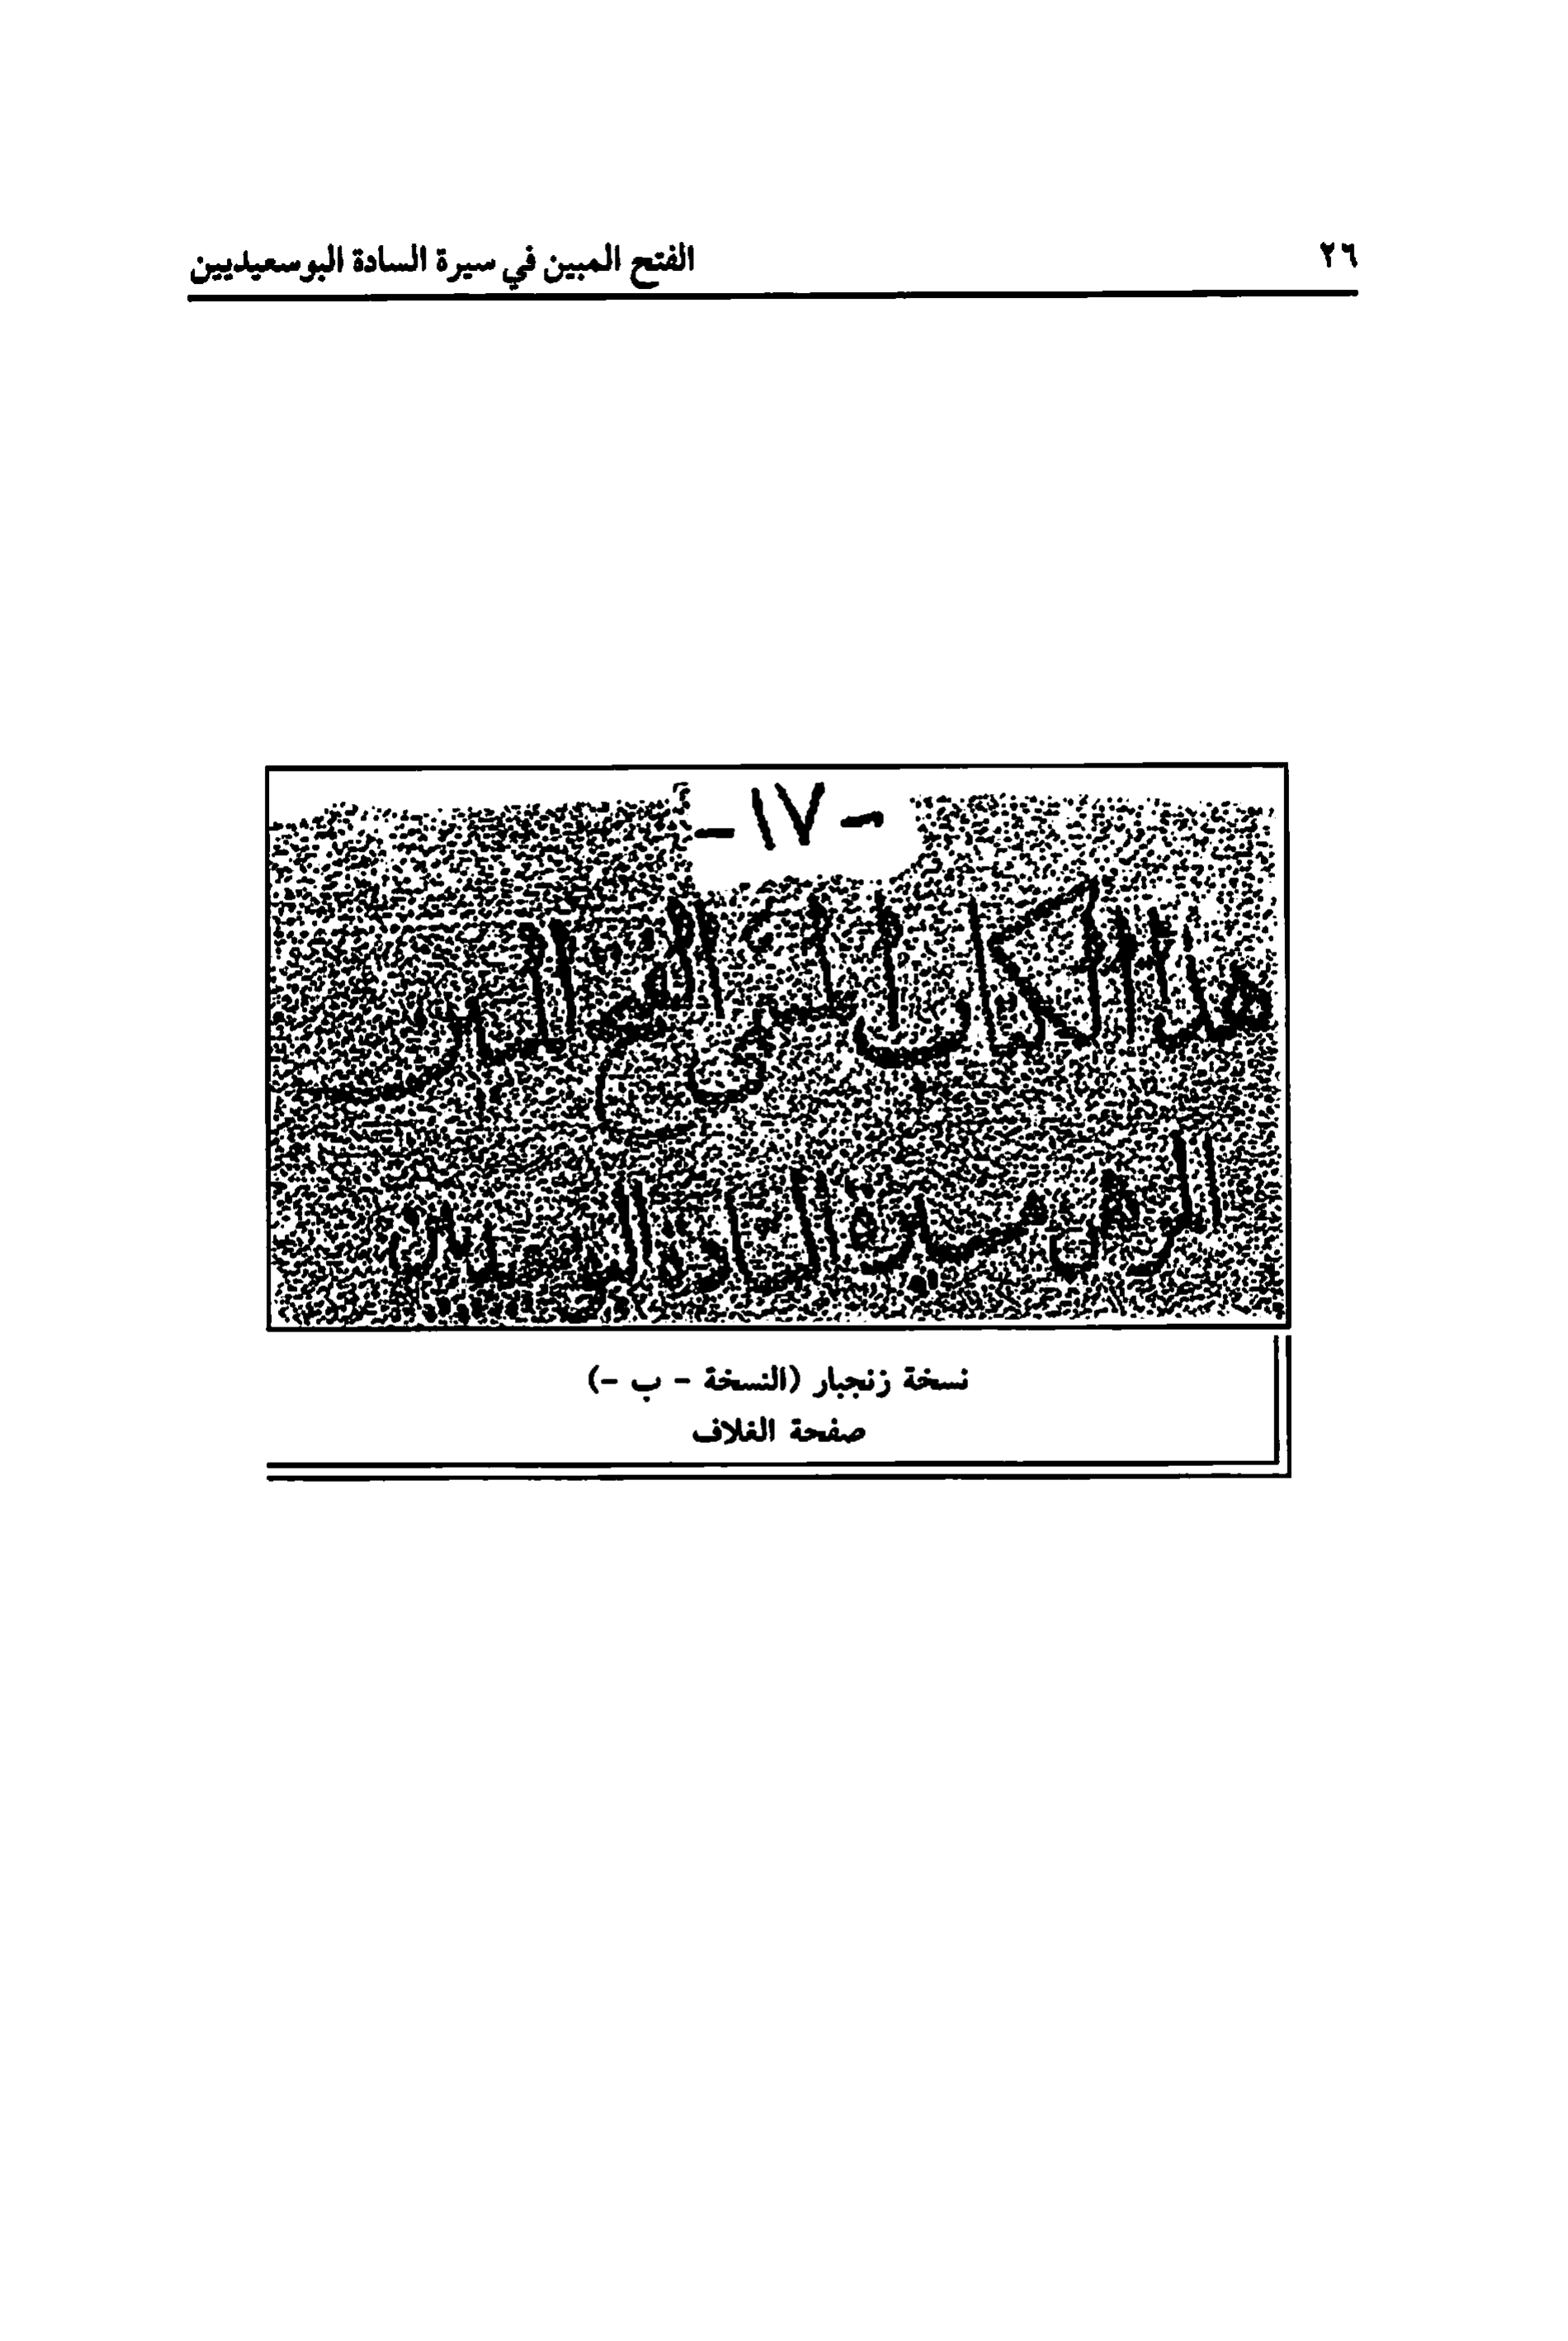 ٢٦
الفتح المبين في سيرة السادة البوسعيديين
- ١٧ -
هذا الكتاب المسمى الفتح المبين
المبرهن سيرة السادة البوسعيديين
نسخة زنجبار (النسخة - ب -)
صفحة الغلاف